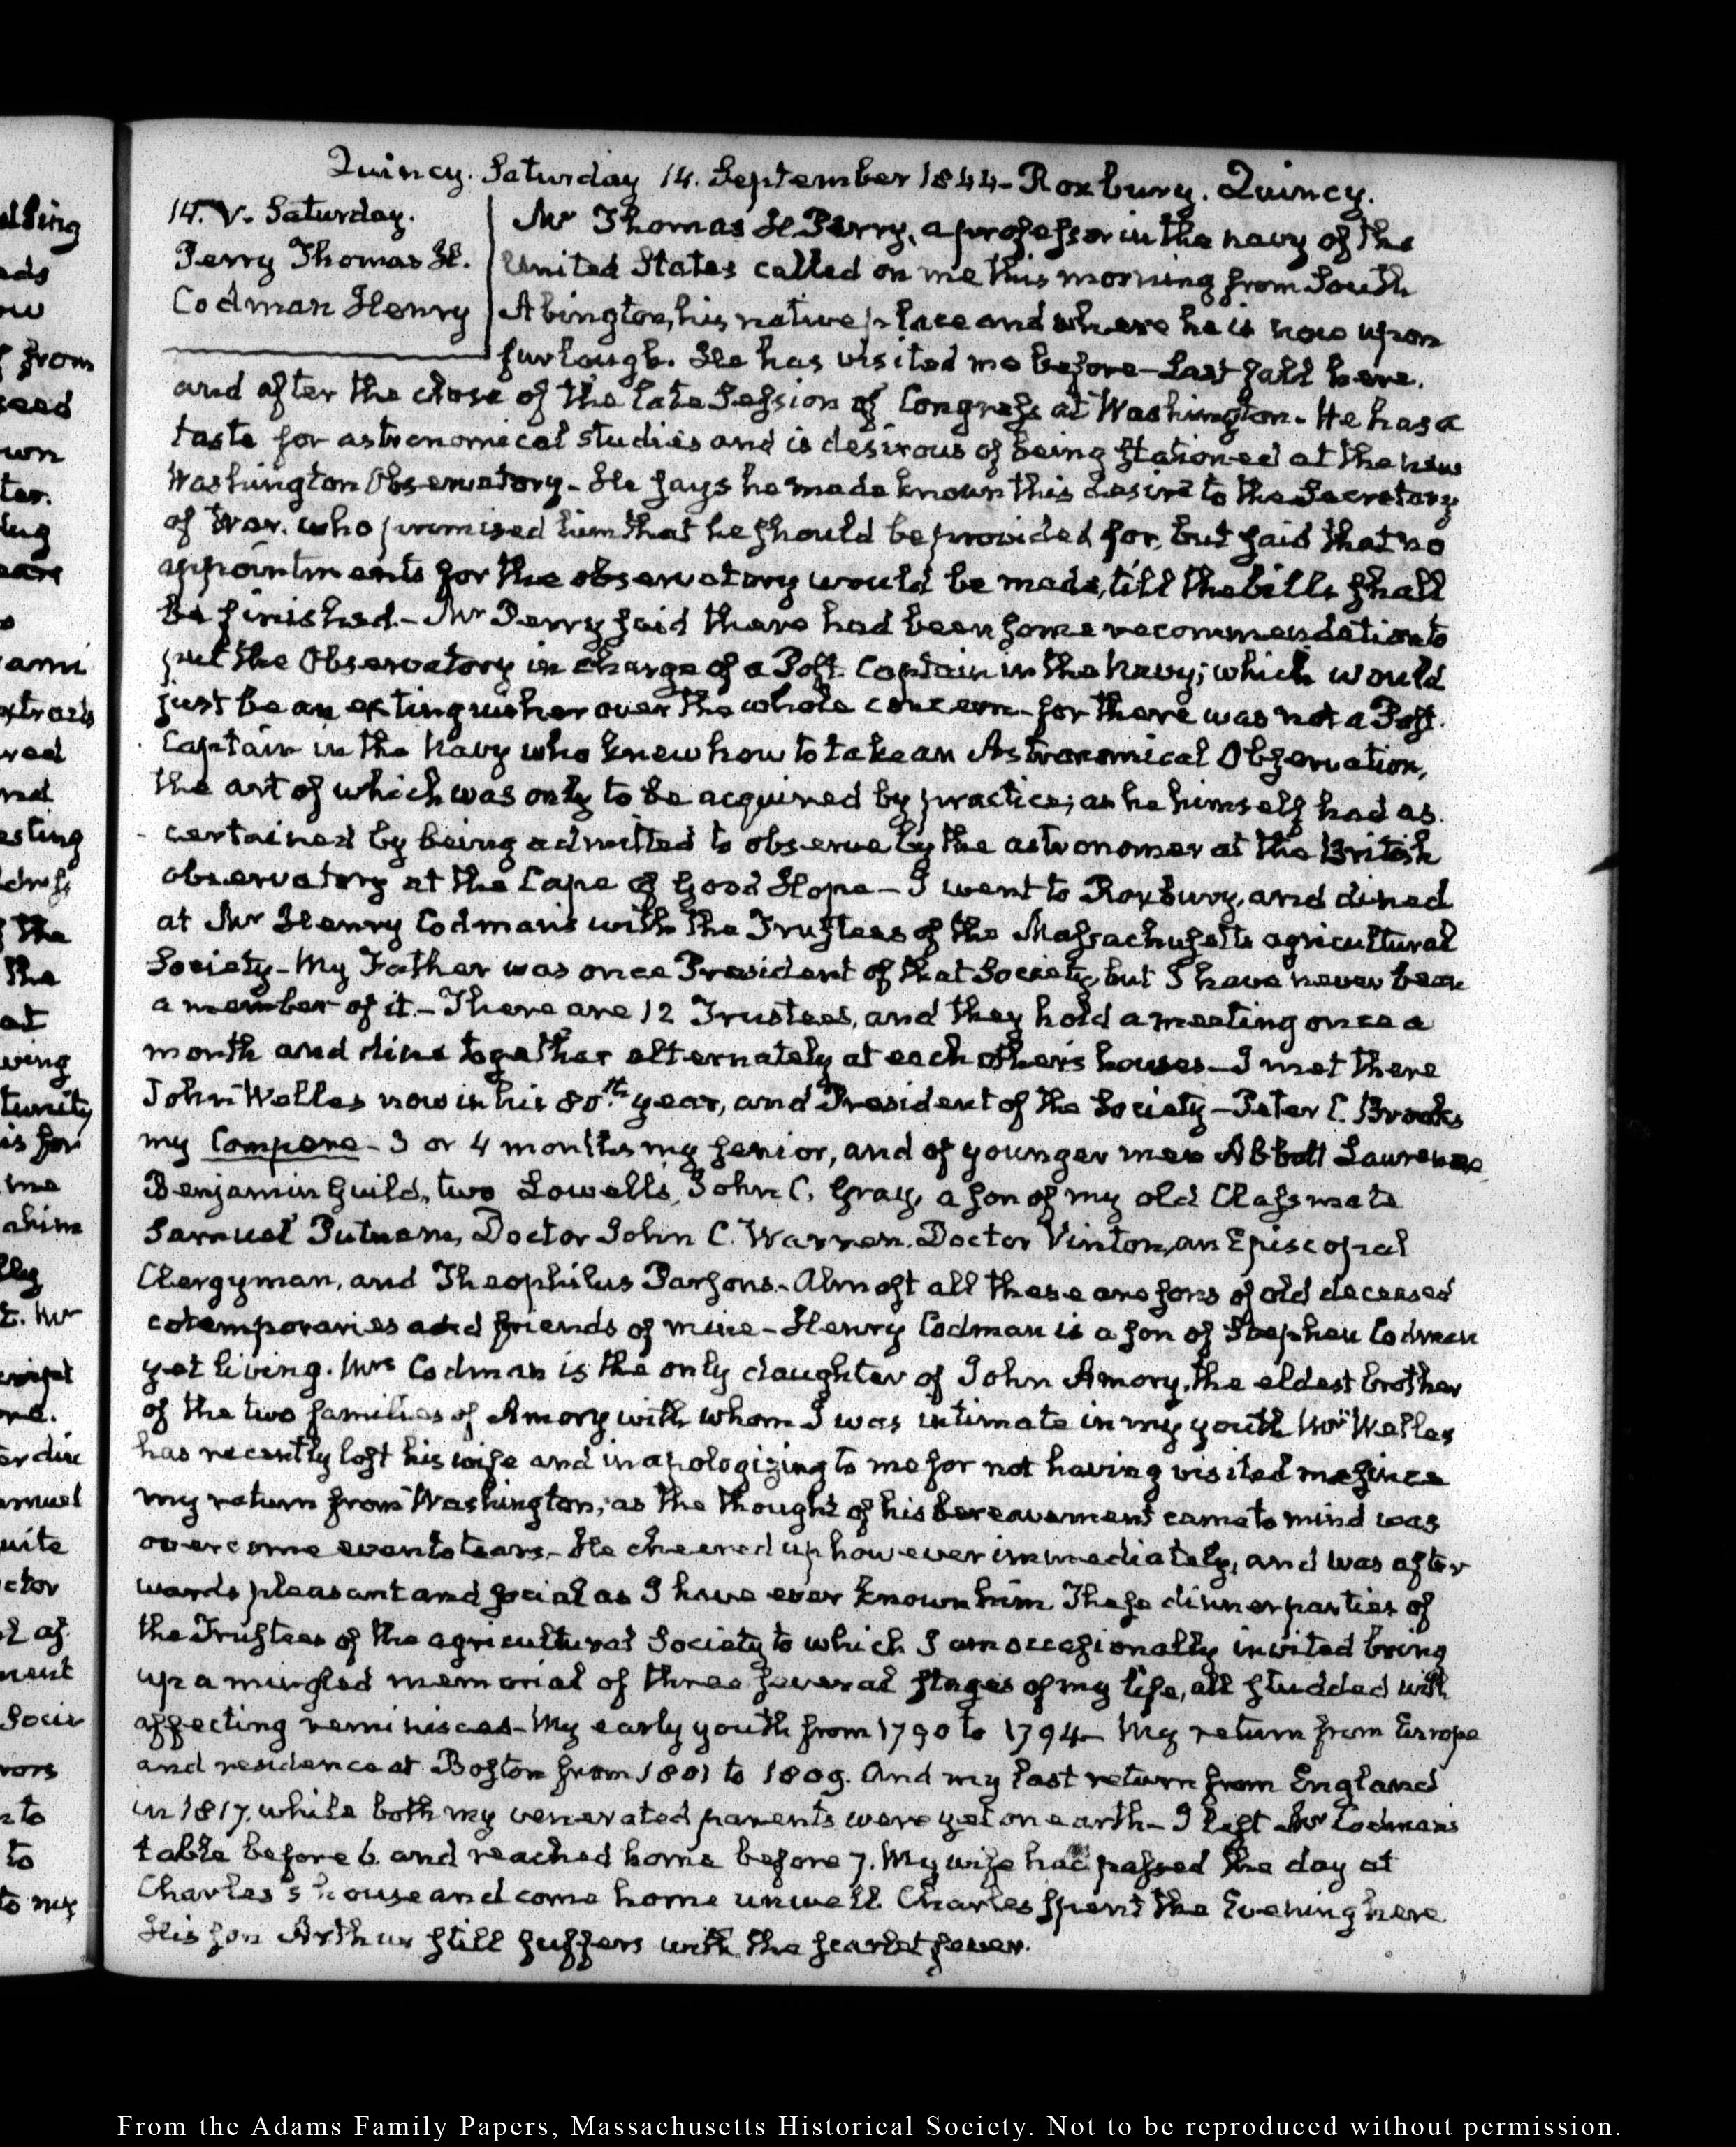 Quincy. Saturday 14. September 1844 - Roxbury. Quincy.
14. V. Saturday.
Perry Thomas H.
Codman Henry
Mr Thomas H Perry, a professor in the navy of the
United States called on me this morning from South
Abington, his native place and where he is now upon
furlough. He has visited me before - last fall here.
and after the close of the late Session of Congress at Washington - He has a
taste for astronomical studies and is desirous of being stationed at the new
Washington Observatory - He says he made known this desire to the Secretary
of War. who promised him that he should be provided for, but said that no
appointments for the observatory would be made, till the bills shall
be finished. - Mr Perry said there had been some recommendation to
put the Observatory in charge of a Post Captain in the Navy; which would
just be an extinguisher over the whole concern - for there was not a Post.
Captain in the Navy who knew how to take an Astronomical Observation,
the art of which was only to be acquired by practice; as he himself had as.
certained by being admitted to observe by the astronomer at the British
observatory at the Cape of Good Hope - I went to Roxbury, and dined
at Mr Henry Codman's with the Trustees of the Massachusetts agricultural
Society - My Father was once President of that Society, but I have never been
a member of it. - There are 12 Trustees, and they hold a meeting once a
month and dine together alternately at each other's houses - I met there
John Welles now in his 80th year, and President of the Society - Peter C. Brooks
my Compere - 3 or 4 months my senior, and of younger men Abbott Lawrence,
Benjamin Guild, two Lowells, John C. Gray, a son of my old Classmate
Samuel Putnam, Doctor John C. Warren. Doctor Vinton, an Episcopal
Clergyman, and Theophilus Parsons. - Almost all these are sons of old deceased
cotemporaries and friends of mine - Henry Codman is a son of Stephen Codman
yet living. Mrs Codman is the only daughter of John Amory, the eldest brother
of the two families of Amory with whom I was intimate in my youth Mr Welles
has recently lost his wife and in apologizing to me for not having visited me since
my return from Washington, as the thought of his bereavement came to mind was
overcome even to tears. - He cheered up however immediately, and was after
wards pleasant and social as I have ever known him. These dinner parties of
the Trustees of the agricultural Society to which I am occasionally invited bring
up a mingled memorial of three several stages of my life, all studded with
affecting reminisces - My early youth from 1790 to 1794 - My return from Europe
and residence at Boston from 1801 to 1809. And my last return from England
in 1817. while both my venerated parents were yet on earth - I left Mr Codman's
table before 6. and reached home before 7. My wife had passed the day at
Charles's house and come home unwell. Charles spent the Evening here
His son Arthur still suffers with the scarlet fever.
From the Adams Family Papers, Massachusetts Historical Society. Not to be reproduced without permission.